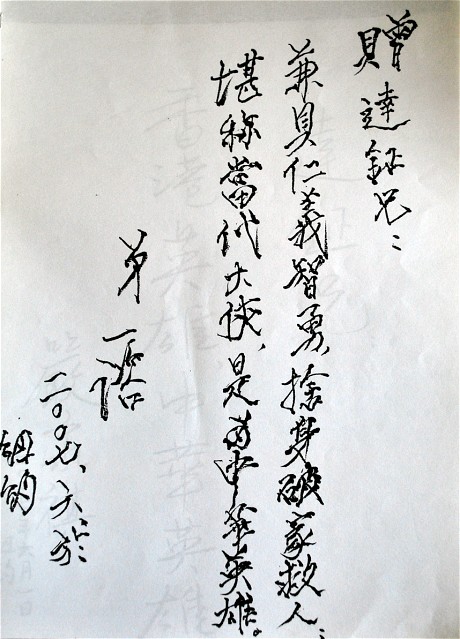 贈達鉦兄：
兼具仁義智勇，捨身破家救人；
堪称當代大俠、是為中華英雄。
弟 一
二〇〇七、六、於
紐約